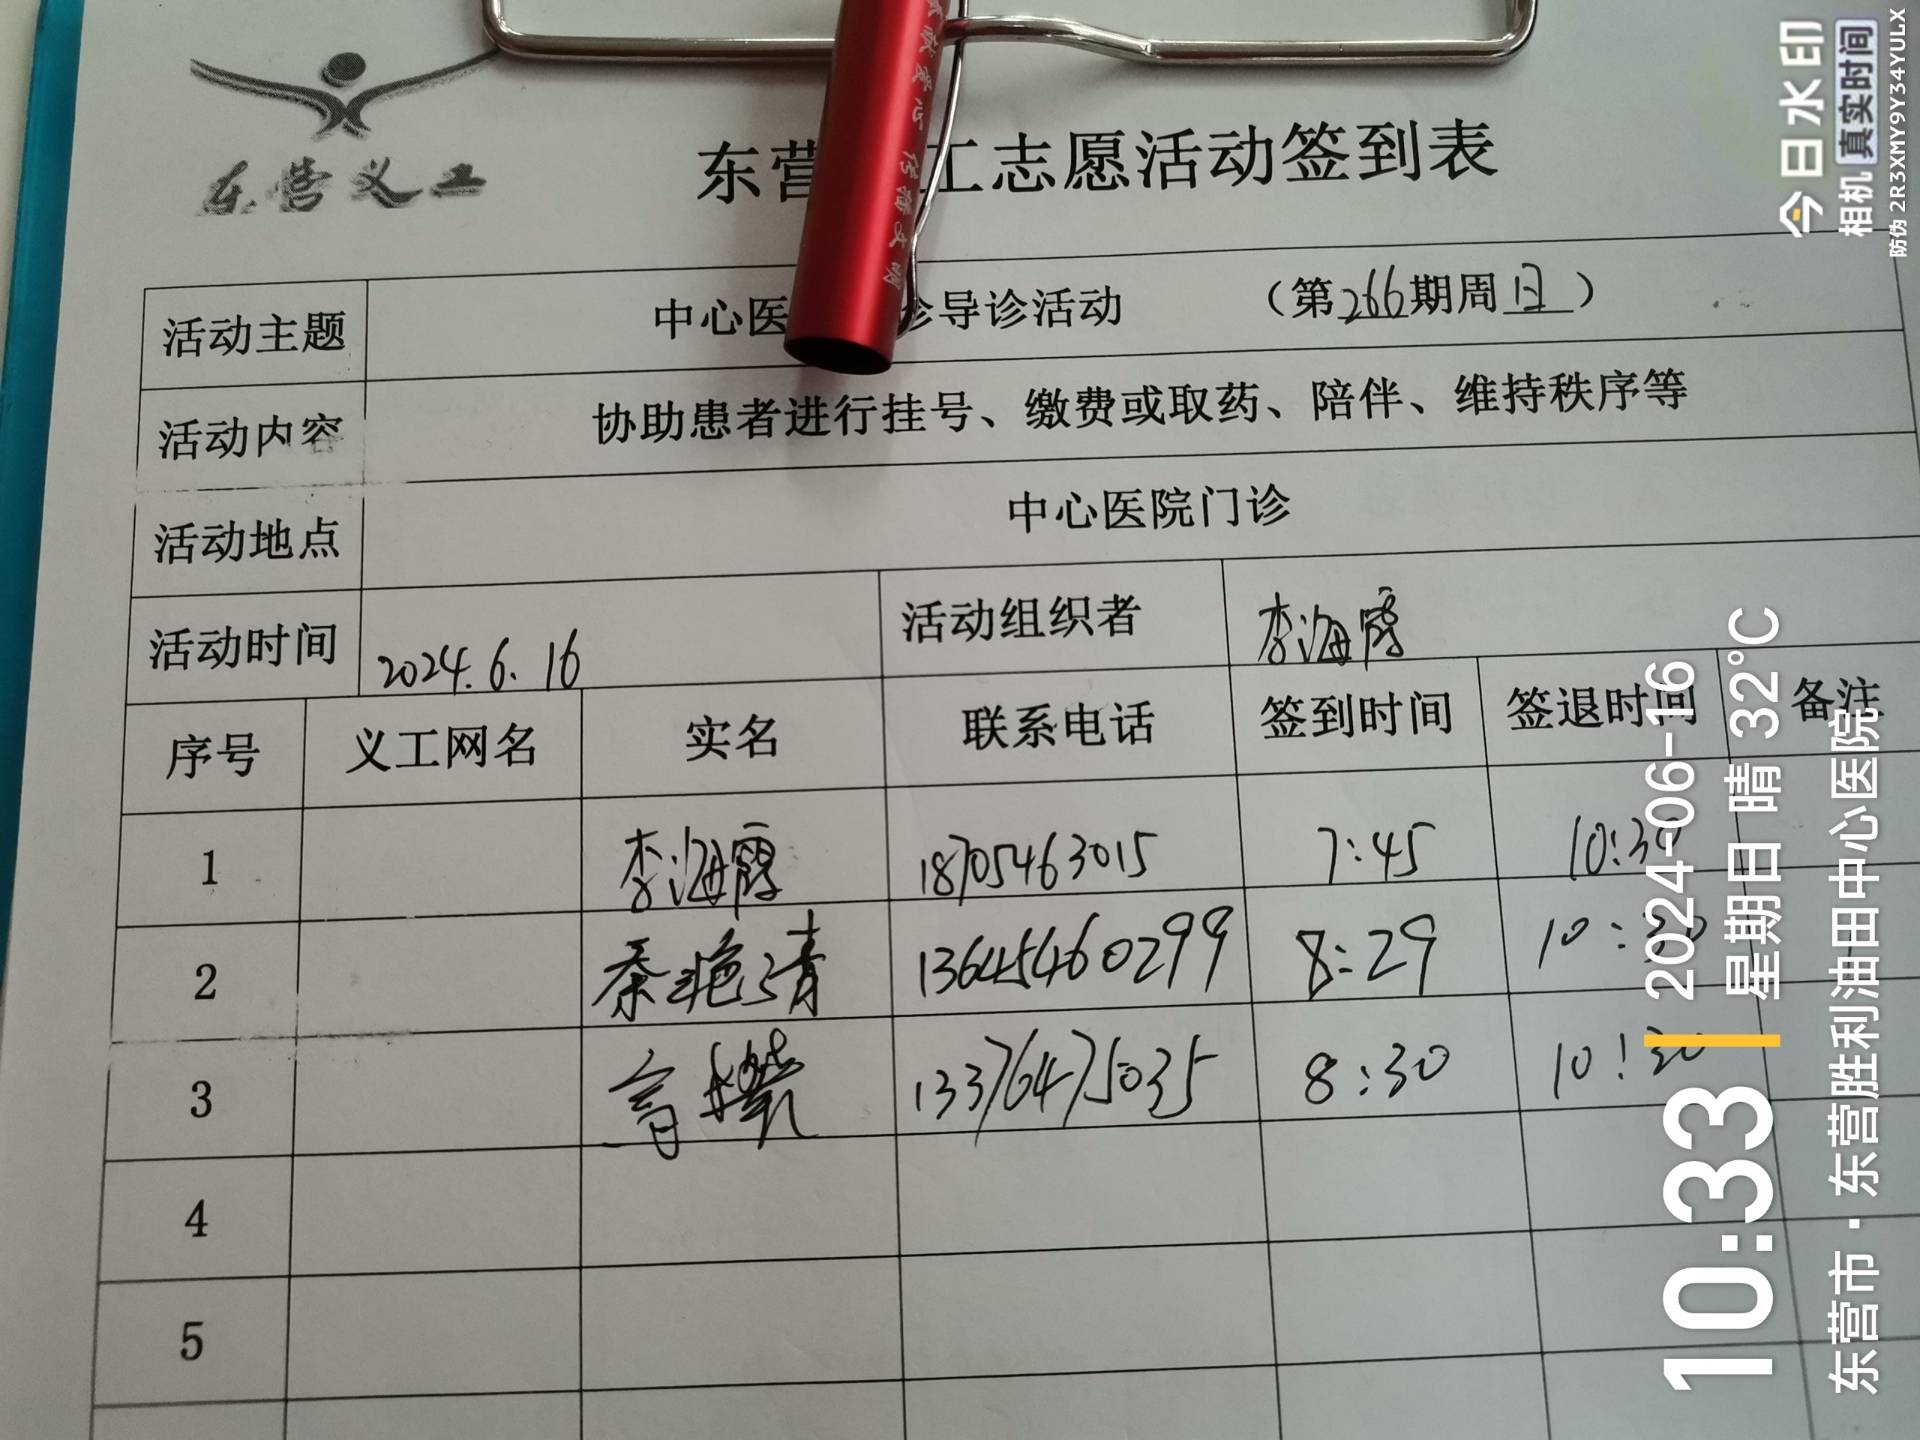 东营义工
东营 工志愿活动签到表
活动主题 中心医 诊导诊活动 （第266期周日）
活动内容 协助患者进行挂号、缴费或取药、陪伴、维持秩序等
活动地点 中心医院门诊
活动时间 2024.6.16 活动组织者 李海霞
序号 义工网名 实名 联系电话 签到时间 签退时间 备注
1 李海霞 18705463015 7:45 10:30
2 秦艳清 13645460299 8:29 10:30
3 13376475035 8:30 10:30
4
5
今日水印
相机 真实时间
防伪 2R3XMY9Y34YULX
10:33
2024-06-16
星期日 晴 32°C
东营市·东营胜利油田中心医院